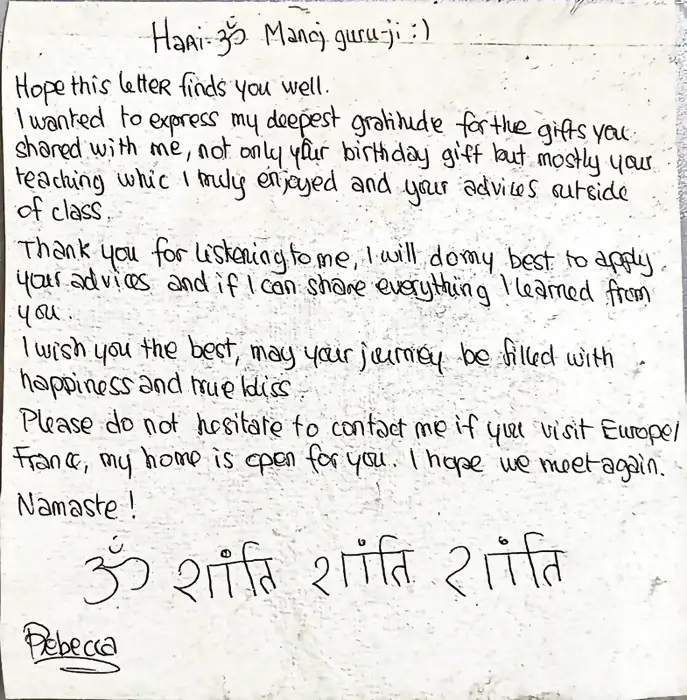 Hari-ॐ Manoj guru-ji :)
Hope this letter finds you well.
I wanted to express my deepest gratitude for the gifts you
shared with me, not only your birthday gift but mostly your
teaching whic I truly enjoyed and your advices outside
of class.
Thank you for listening to me, I will do my best to apply
your advices and if I can share everything I learned from
you.
I wish you the best, may your journey be filled with
happiness and true bliss.
Please do not hesitate to contact me if you visit Europe/
France, my home is open for you. I hope we meet again.
Namaste!
ॐ शांति शांति शांति
Rebecca